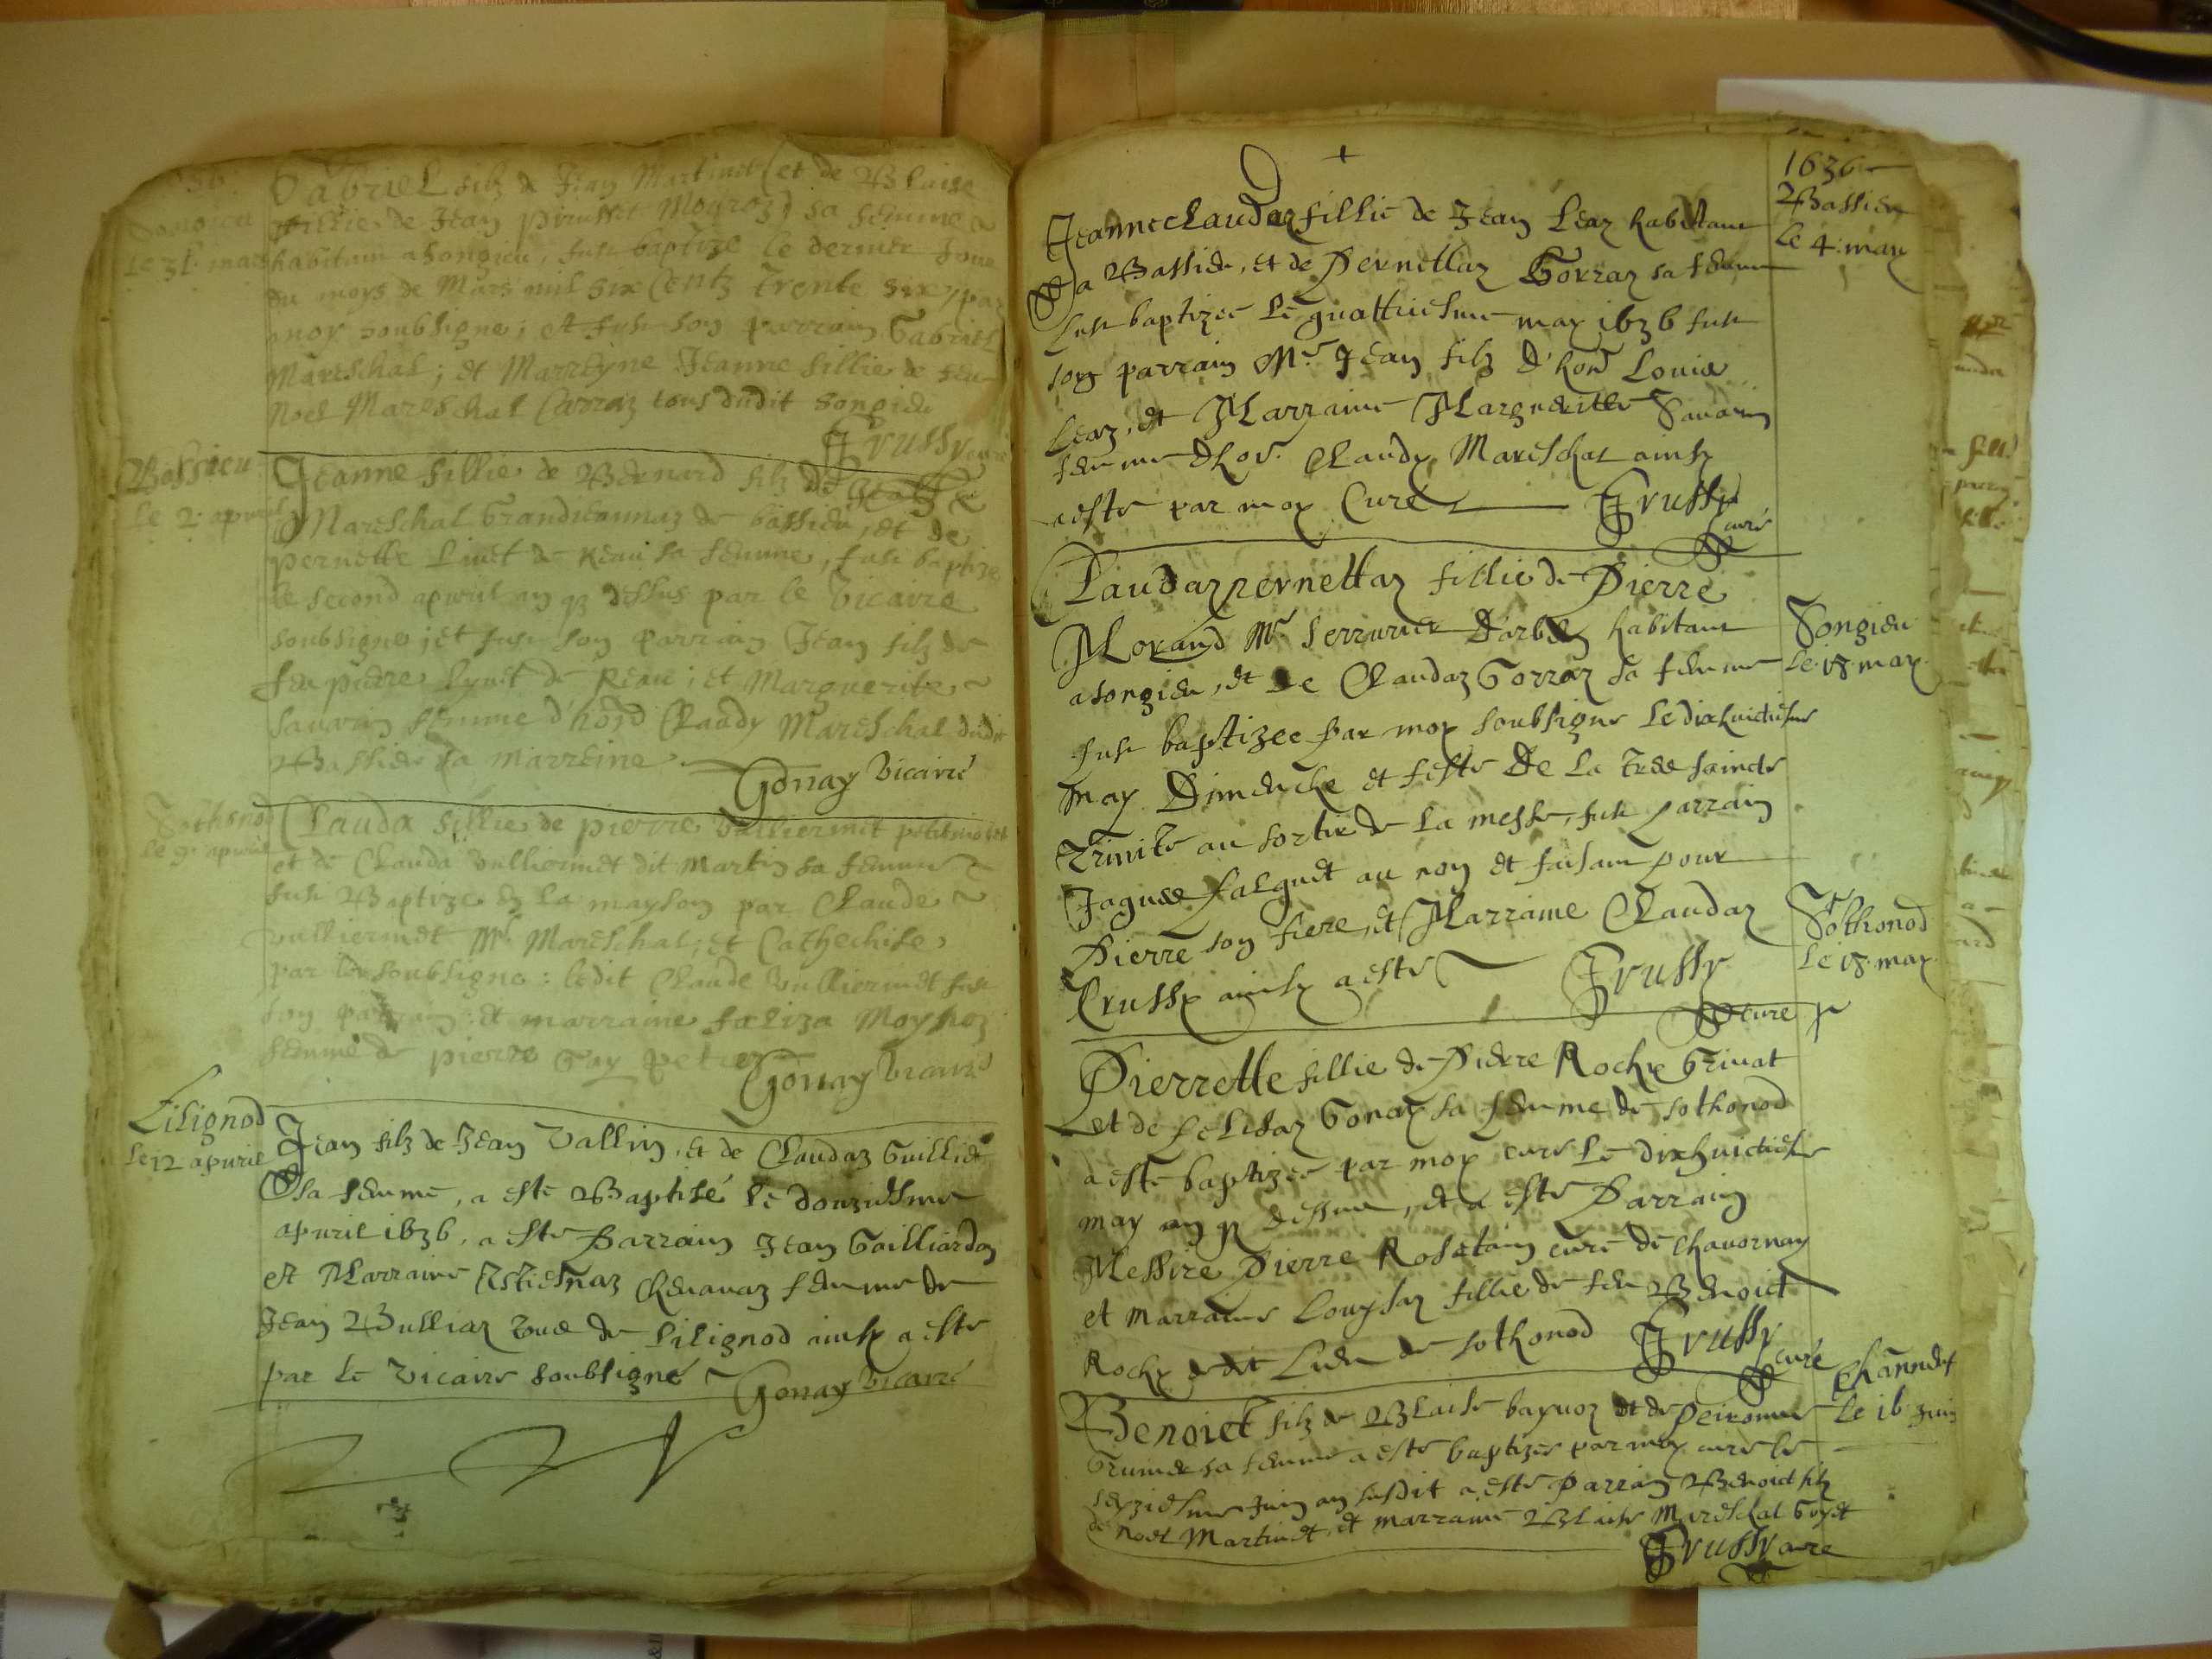 Songieu
Le 31. mars
Gabriel filz de Jean Martinet (et de Blaise
fillie de Jean Mognoz) sa femme
habitant a Songieu, fust baptize le dernier jour
du moys de Mars mil six centz trente six, par
moy soubsigne; et fust son parrain Gabriel
Mareschal; et Marreyne Jeanne fillie de feu
Noel Mareschal Carraz tous dudit Songieu
Trussy curé
Bassieu
Le 2. apvril
Jeanne fillie de Bernard filz de
Mareschal Grandjeannaz de bassieu, et de
pernette Livet de Reau sa femme, fust baptize
le second apvril an q3 dessus par le Vicaire
soubsigne; et fust son parrain Jean filz de
feu pierre Lyvet de Reau; et Marguerite
Savarin femme d'hord Claudy Mareschal dudit
Bassieu sa marreine
Gonay Vicaire
Sothonod
Le 9. apvril
Clauda fillie de pierre Vulliermet
et de Clauda Vulliermet dit Martin sa femme
fust Baptize en la mayson par Claude
Vulliermet Mr. Mareschal; et Cathechise
par le soubsigne: ledit Claude Vulliermet fust
son parrain: et marraine faliza Moynoz
femme de pierre Gay
Gonay Vicaire
Lilignod
Le 12 apvril
Jean filz de Jean Vallin, et de Claudaz Guillie
sa femme, a este Baptisé le douziesme
apvril 1636, a este Parrain Jean Gailliardon
et Marraine Estiennaz Chevanaz femme de
Jean Bulliaz tous de Lilignod ainsy a este
par le Vicaire soubsigné
Gonay Vicaire
1636
Bassieu
Le 4. may
Jeanneclaudaz fillie de Jean Leaz habitant
a Bassieu, et de Pernettaz Gorraz sa femme
fust baptizee le quattriesme may 1636 fust
son parrain Mr. Jean filz d'hord Louis
Leaz, et Marraine Marguerite Savarin
femme d'hor. Claudy Mareschal ainsy
a este par moy Curé Trussy
curé
Songieu
Le 18. may
Claudazpernettaz fillie de Pierre
Morand Mr. serrurier habitant
a songieu, et de Claudaz Gorraz sa femme
fust baptizee par moy soubsigne le dixhuictiesme
may Dimenche et feste De la tres saincte
Trinite au sortir de la messe, fust parrain
Jaques falquet au nom et faisant pour
Pierre son frere, et Marraine Claudaz
Trussy ainsy a este Trussy
curé
Sothonod
Le 18. may
Pierrette fillie de Pierre Rochy Grivat
et de felisaz Gonay sa femme de sothonod
a este baptizee par moy cure le dixhuictiesme
may an q3 dessus, et a este Parrain
Messire Pierre Rosetain cure de chavornay
et marraine Louysaz fillie de feu Benoict
Rochy de sothonod Trussy
curé
Le 16 juin
Benoict filz de Blaise bayvoz et de Peironne
sa femme a este baptizee par moy curé le
seziesme Juin an susdit a este Parrain Benoict filz
de Noel Martinet, et marraine Blaise Mareschal Goyet
Trussy curé